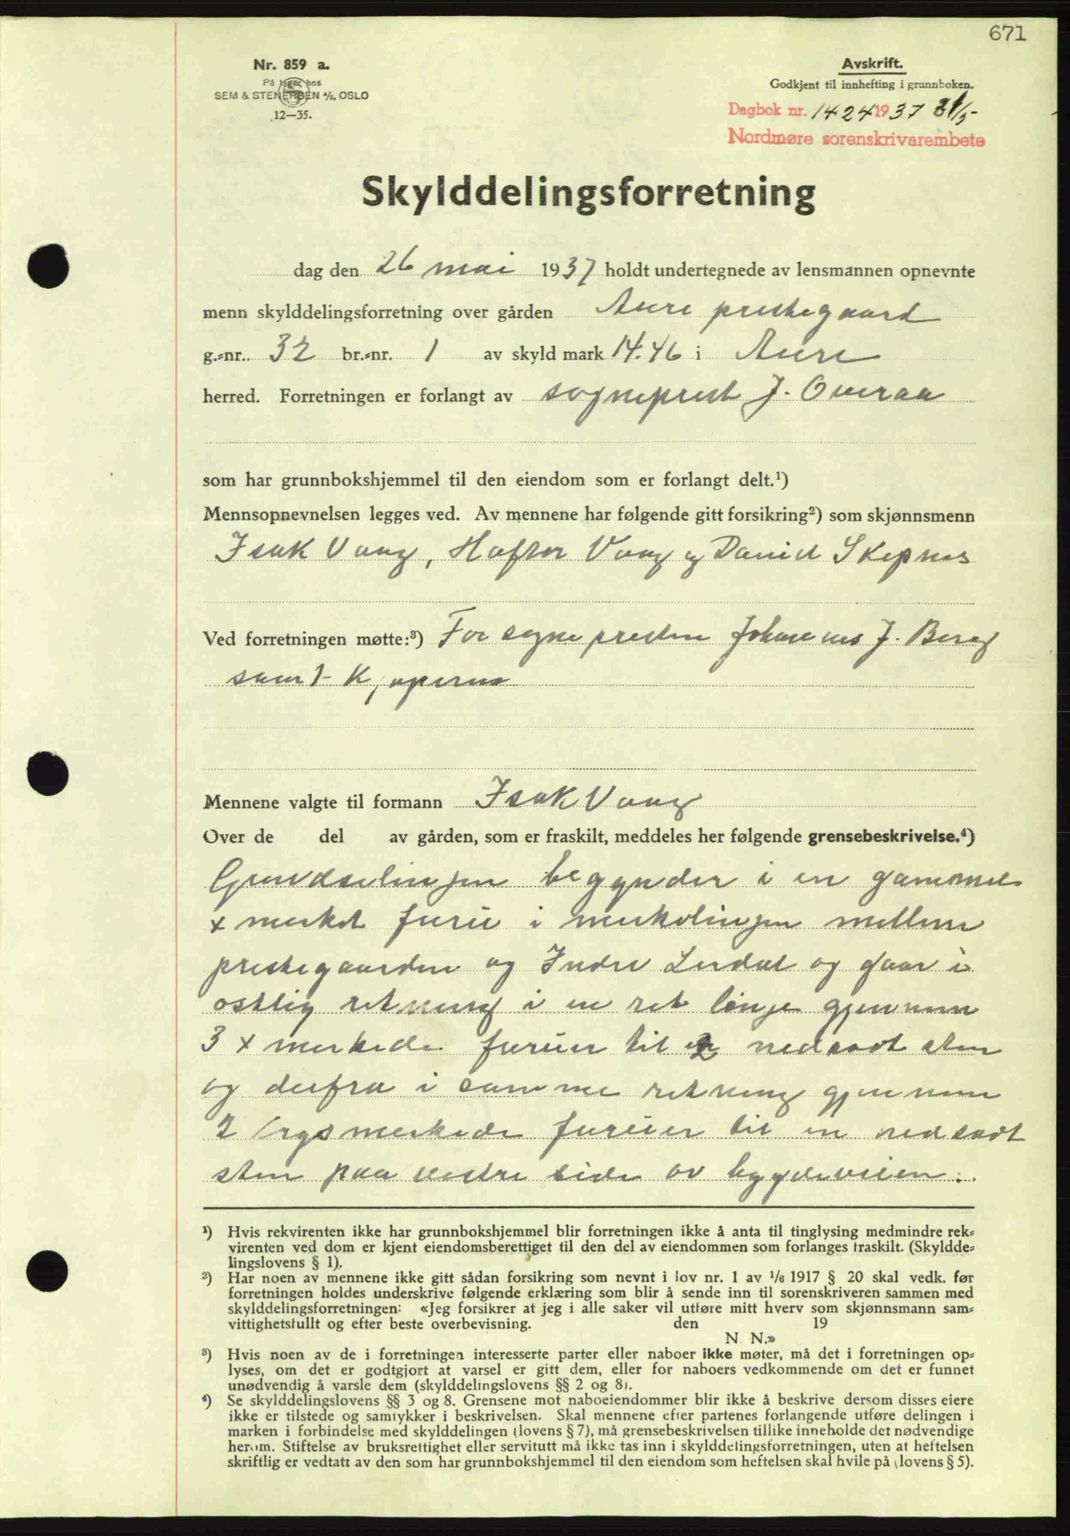 671
Nr. 859 a.
På lager hos
SEM & STENERSEN A/S, OSLO
12—35.
Avskrift.
Godkjent til innhefting i grunnboken.
Dagbok nr. 1424 1937 31/5-
Nordmøre sorenskrivarembete
Skylddelingsforretning
dag den 26 mai 1937 holdt undertegnede av lensmannen opnevnte
menn skylddelingsforretning over gården Aure prestegaard
g.-nr. 32 br.-nr. 1 av skyld mark 14.46 i Aure
herred. Forretningen er forlangt av sogneprest J. Overaa
som har grunnbokshjemmel til den eiendom som er forlangt delt.¹)
Mennsopnevnelsen legges ved. Av mennene har følgende gitt forsikring²) som skjønnsmenn
Isak Vaag, Haftor Vaag og David Skipnes
Ved forretningen møtte:³) For sognepresten Johannes J. Berg
samt Kjøperne
Mennene valgte til formann Isak Vaag
Over de del av gården, som er fraskilt, meddeles her følgende grensebeskrivelse.⁴)
Grendselinjen begynder i en gammel
x merket furu i merkelinjen mellem
prestegaarden og Indre Lerdal og gaar i
østlig retning i en ret linje gjennem
3 x merkede furuer til 2 nedsadt sten
og derfra i samme retning gjennem
2 krysmerkede furuer til en nedsadt
sten paa vestre side av bygdeveien.
¹) Hvis rekvirenten ikke har grunnbokshjemmel blir forretningen ikke å anta til tinglysing medmindre rek-
virenten ved dom er kjent eiendomsberettiget til den del av eiendommen som forlanges fraskilt. (Skyldde-
lingslovens § 1).
²) Har noen av mennene ikke gitt sådan forsikring som nevnt i lov nr. 1 av 1/6 1917 § 20 skal vedk. før
forretningen holdes underskrive følgende erklæring som blir å sende inn til sorenskriveren sammen med
skylddelingsforretningen: «Jeg forsikrer at jeg i alle saker vil utføre mitt hverv som skjønnsmann sam-
vittighetsfullt og efter beste overbevisning. den 19
N. N.»
³) Hvis noen av de i forretningen interesserte parter eller naboer ikke møter, må det i forretningen op-
lyses, om det er godtgjort at varsel er gitt dem, eller for naboers vedkommende om det er funnet
unødvendig å varsle dem (skylddelingslovens §§ 2 og 8).
⁴) Se skylddelingslovens §§ 3 og 8. Grensene mot naboeiendommer blir ikke å beskrive dersom disses eiere
ikke er tilstede og samtykker i beskrivelsen. Skal mennene efter partenes forlangende utføre delingen i
marken i forbindelse med skylddelingen (lovens § 7), må grensebeskrivelsen tillike inneholde det nødvendige
herom. Stiftelse av bruksrettighet eller servitutt må ikke tas inn i skylddelingsforretningen, uten at heftelsen
skriftlig er vedtatt av den som har grunnbokshjemmel til den eiendom som heftelsen skal hvile på (lovens § 5).